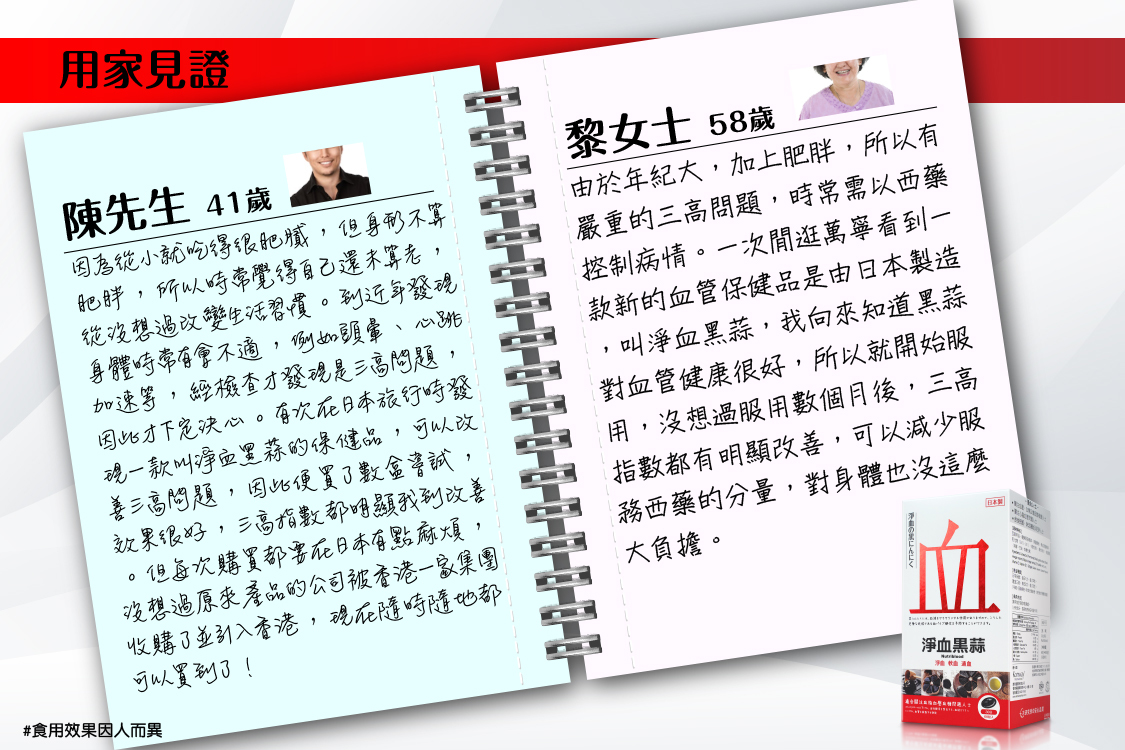 用家見證
陳先生 41歲
因為從小就吃得很肥膩，但身形不算
肥胖，所以時常覺得自己還未算老，
從沒想過改變生活習慣。到近年發現
身體時常有會不適，例如頭暈、心跳
加速等，經檢查才發現是三高問題，
因此才下定決心。有次在日本旅行時發
現一款叫淨血黑蒜的保健品，可以改
善三高問題，因此便買了數盒嘗試，
效果很好，三高指數都明顯我到改善
。但每次購買都要在日本有點麻煩，
沒想過原來產品的公司被香港一家集團
收購了並引入香港，現在隨時隨地都
可以買到了！
黎女士 58歲
由於年紀大，加上肥胖，所以有
嚴重的三高問題，時常需以西藥
控制病情。一次閒逛萬寧看到一
款新的血管保健品是由日本製造
，叫淨血黑蒜，我向來知道黑蒜
對血管健康很好，所以就開始服
用，沒想過服用數個月後，三高
指數都有明顯改善，可以減少服
務西藥的分量，對身體也沒這麼
大負擔。
日本製
淨血の黒にんにく
血
淨血黑蒜
Nutriblood
淨血 軟血 通血
#食用效果因人而異